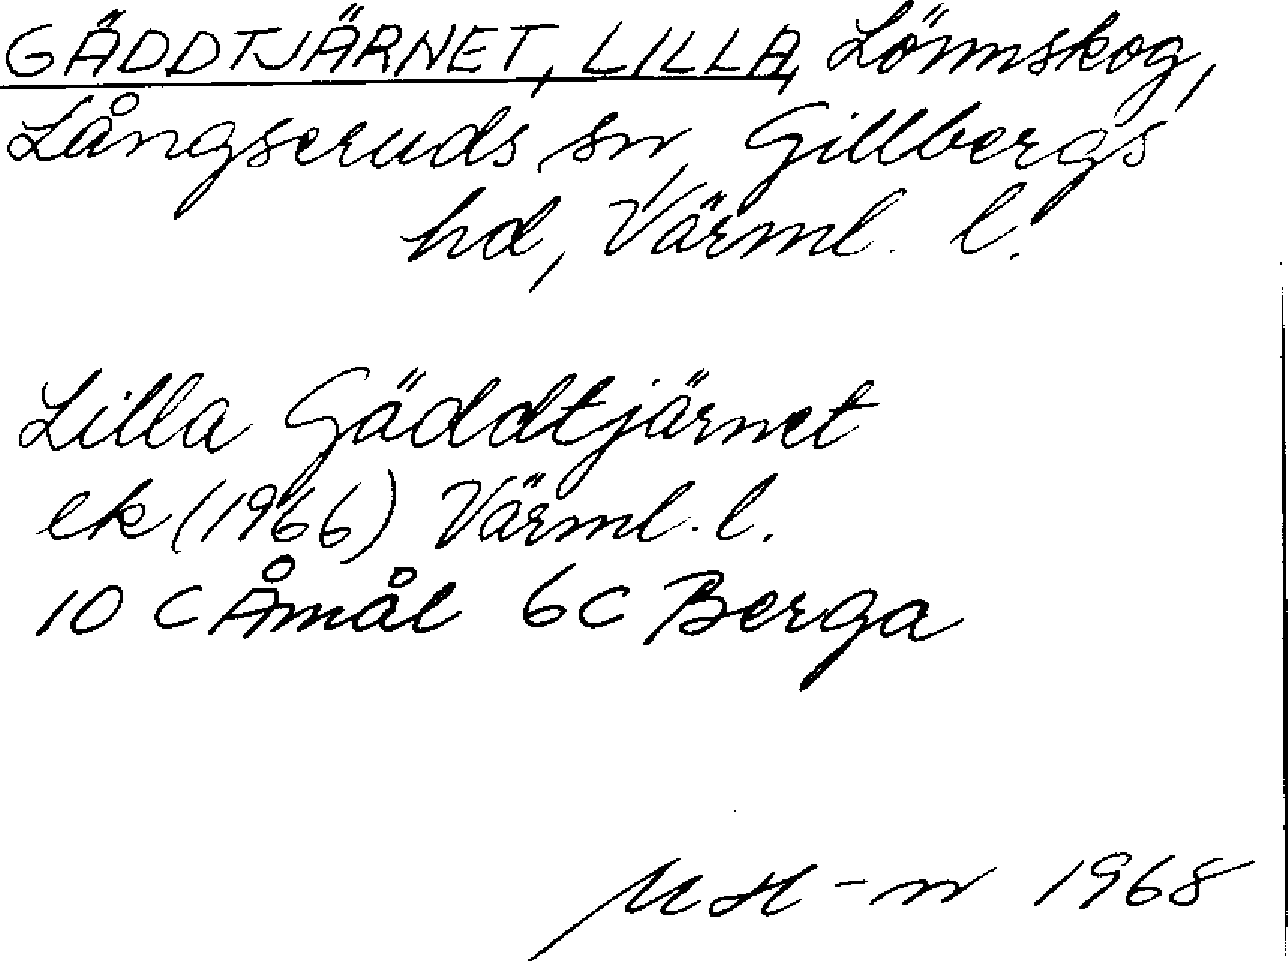 GÄDDTJÄRNET, LILLA, Lönnskog,
Långseruds sn, Gillbergs
hd, Värml. l.
Lilla Gäddtjärnet
ek (1966) Värml. l.
10 C Åmål 6c Berga
MH-n 1968